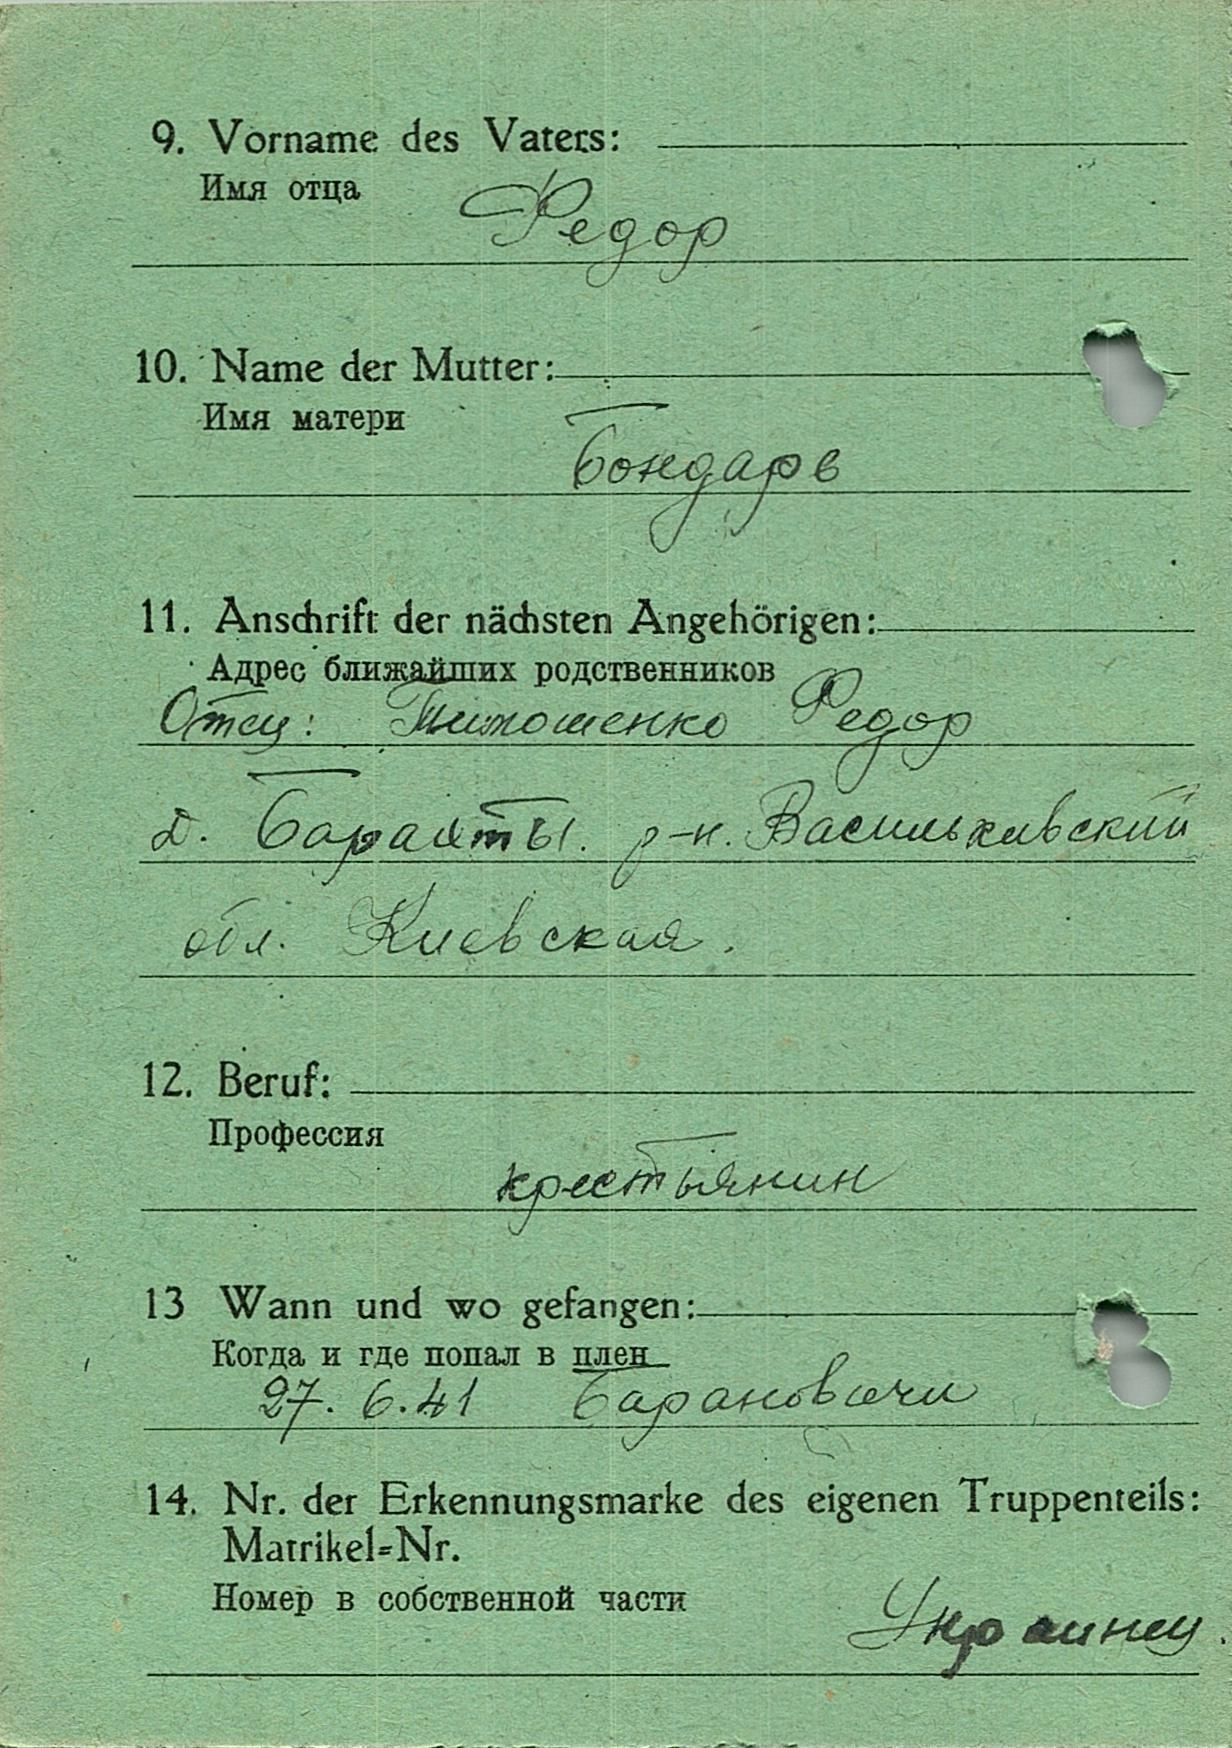 9. Vorname des Vaters:
Имя отца
Федор
10. Name der Mutter:
Имя матери
Бондарь
11. Anschrift der nächsten Angehörigen:
Адрес ближайших родственников
Отец: Тимошенко Федор
д. Барахты. р-н. Васильkивский
обл. Киевская.
12. Beruf:
Профессия
крестьянин
13 Wann und wo gefangen:
Когда и где попал в плен
27. 6.41 Барановичи
14. Nr. der Erkennungsmarke des eigenen Truppenteils:
Matrikel=Nr.
Номер в собственной части
Украинец.